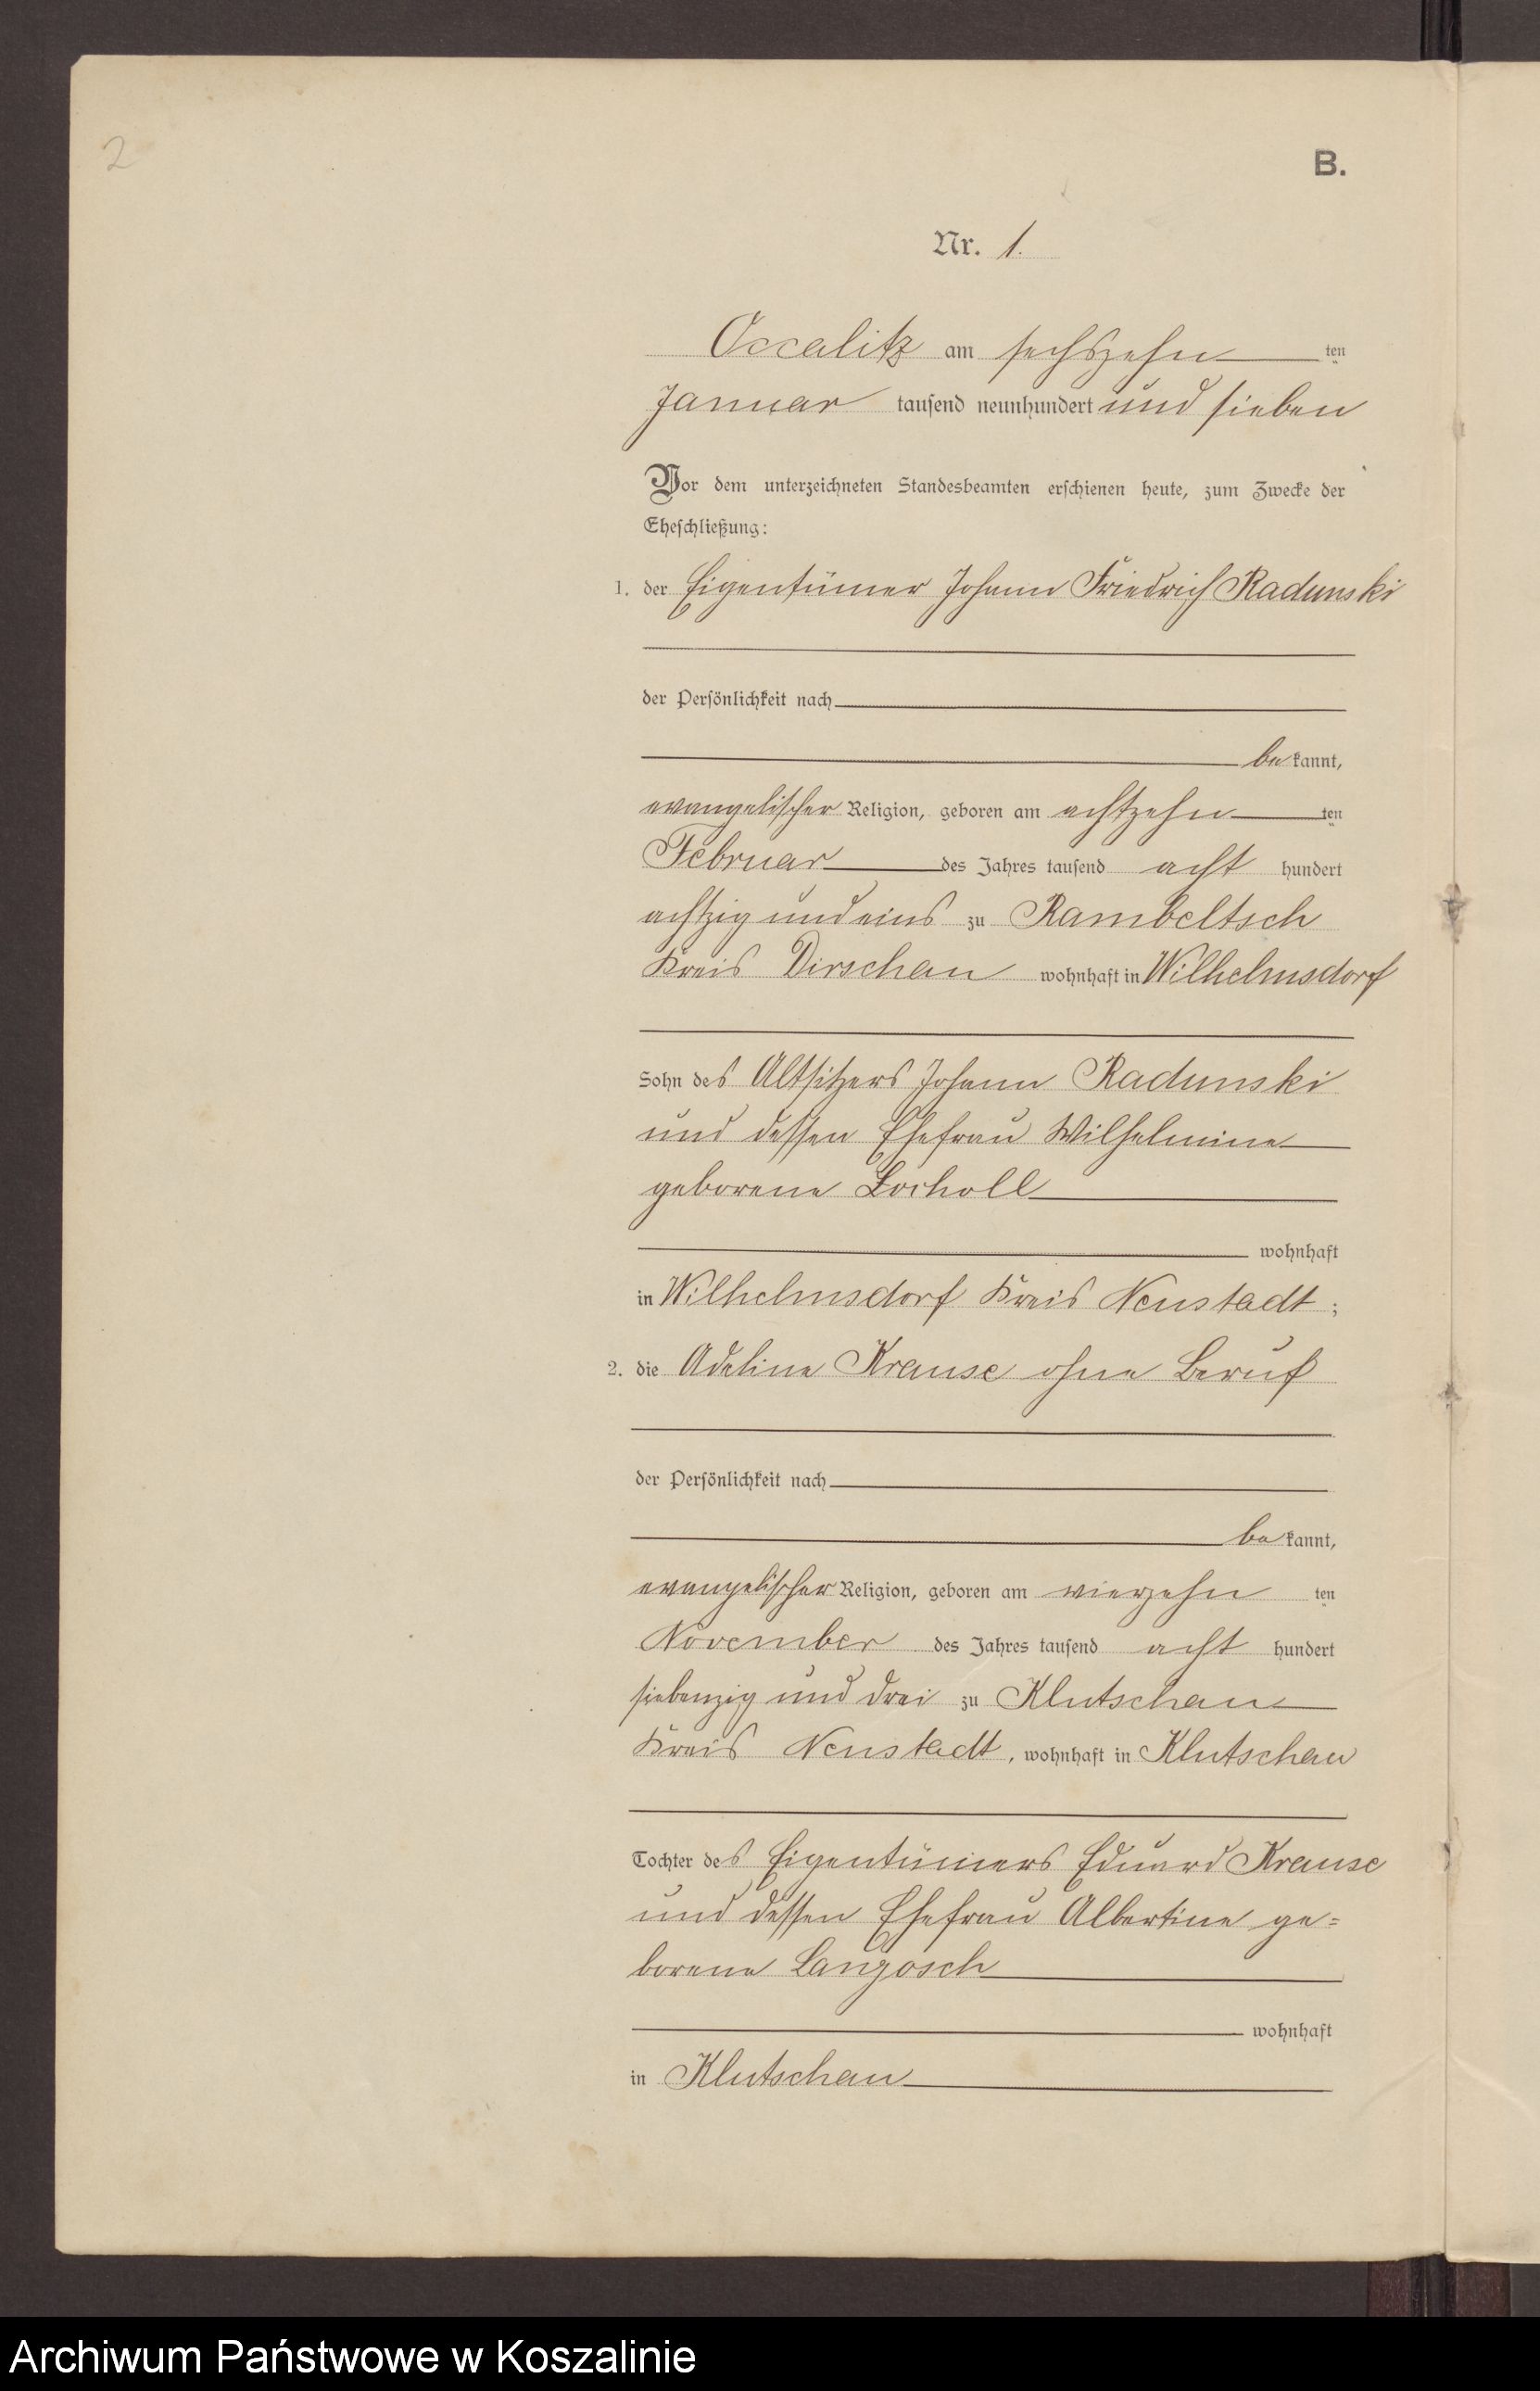 2
B.
Nr. 1.
Occalitz am sechszehn ten
Januar tausend neunhundert und sieben
Vor dem unterzeichneten Standesbeamten erschienen heute, zum Zwecke der
Eheschließung:
1. der Eigentümer Johann Friedrich Radunski
der Persönlichkeit nach
be kannt,
evangelischer Religion, geboren am achtzehn ten
Februar des Jahres tausend acht hundert
achtzig und eins zu Rambeltsch
Kreis Dirschau wohnhaft in Wilhelmsdorf
Sohn des Altsitzers Johann Radunski
und dessen Ehefrau Wilhelmine
geborene Locholl
wohnhaft
in Wilhelmsdorf Kreis Neustadt ;
2. die Adeline Krause ohne Beruf
der Persönlichkeit nach
be kannt,
evangelischer Religion, geboren am vierzehn ten
November des Jahres tausend acht hundert
siebenzig und drei zu Klutschau
Kreis Neustadt, wohnhaft in Klutschau
Tochter des Eigentümers Eduard Krause
und dessen Ehefrau Albertine ge=
borene Langosch
wohnhaft
in Klutschau
Archiwum Państwowe w Koszalinie